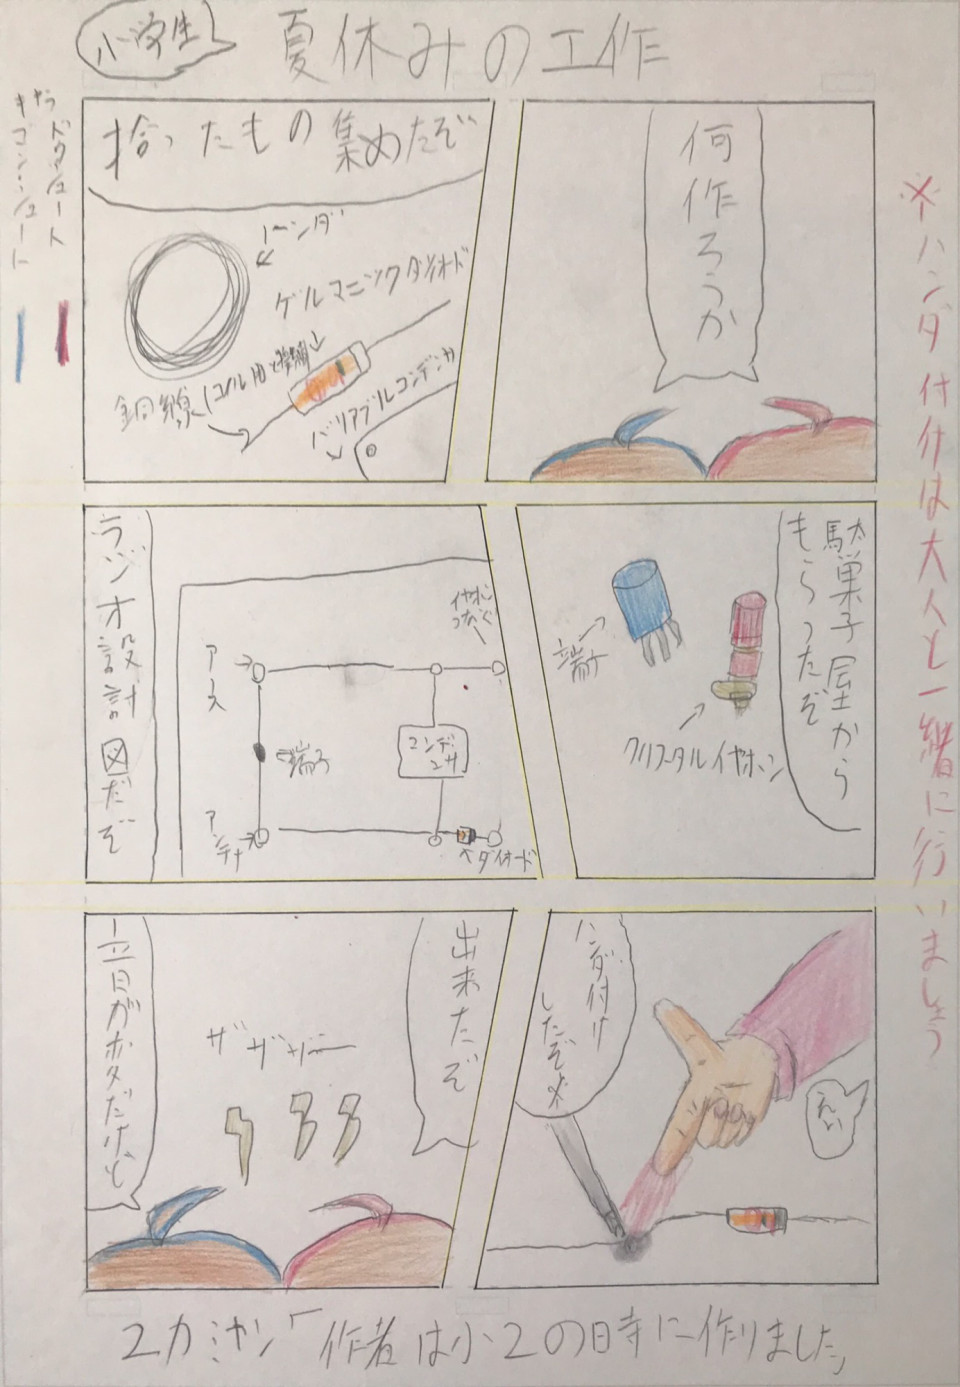 小学生
夏休みの工作
※ハンダ付けは大人と一緒に行いましょう
何作ろうか
拾ったもの集めたぞ
ゲルマニックダイオード
銅線(コイル用と接続)
バリアブルコンデンサ
駄菓子屋から
もらったぞ
端子
クリスタルイヤホン
ラジオ設計図だぞ
イヤホン
つなぐ
アース
端子
コンデ
ンサ
アンテナ
ダイオード
ハンダ付け
したぞ※
えい
出来たぞ
ザザザー
音がホタだけど
ユカミヤン「作者は小2の時に作りました」